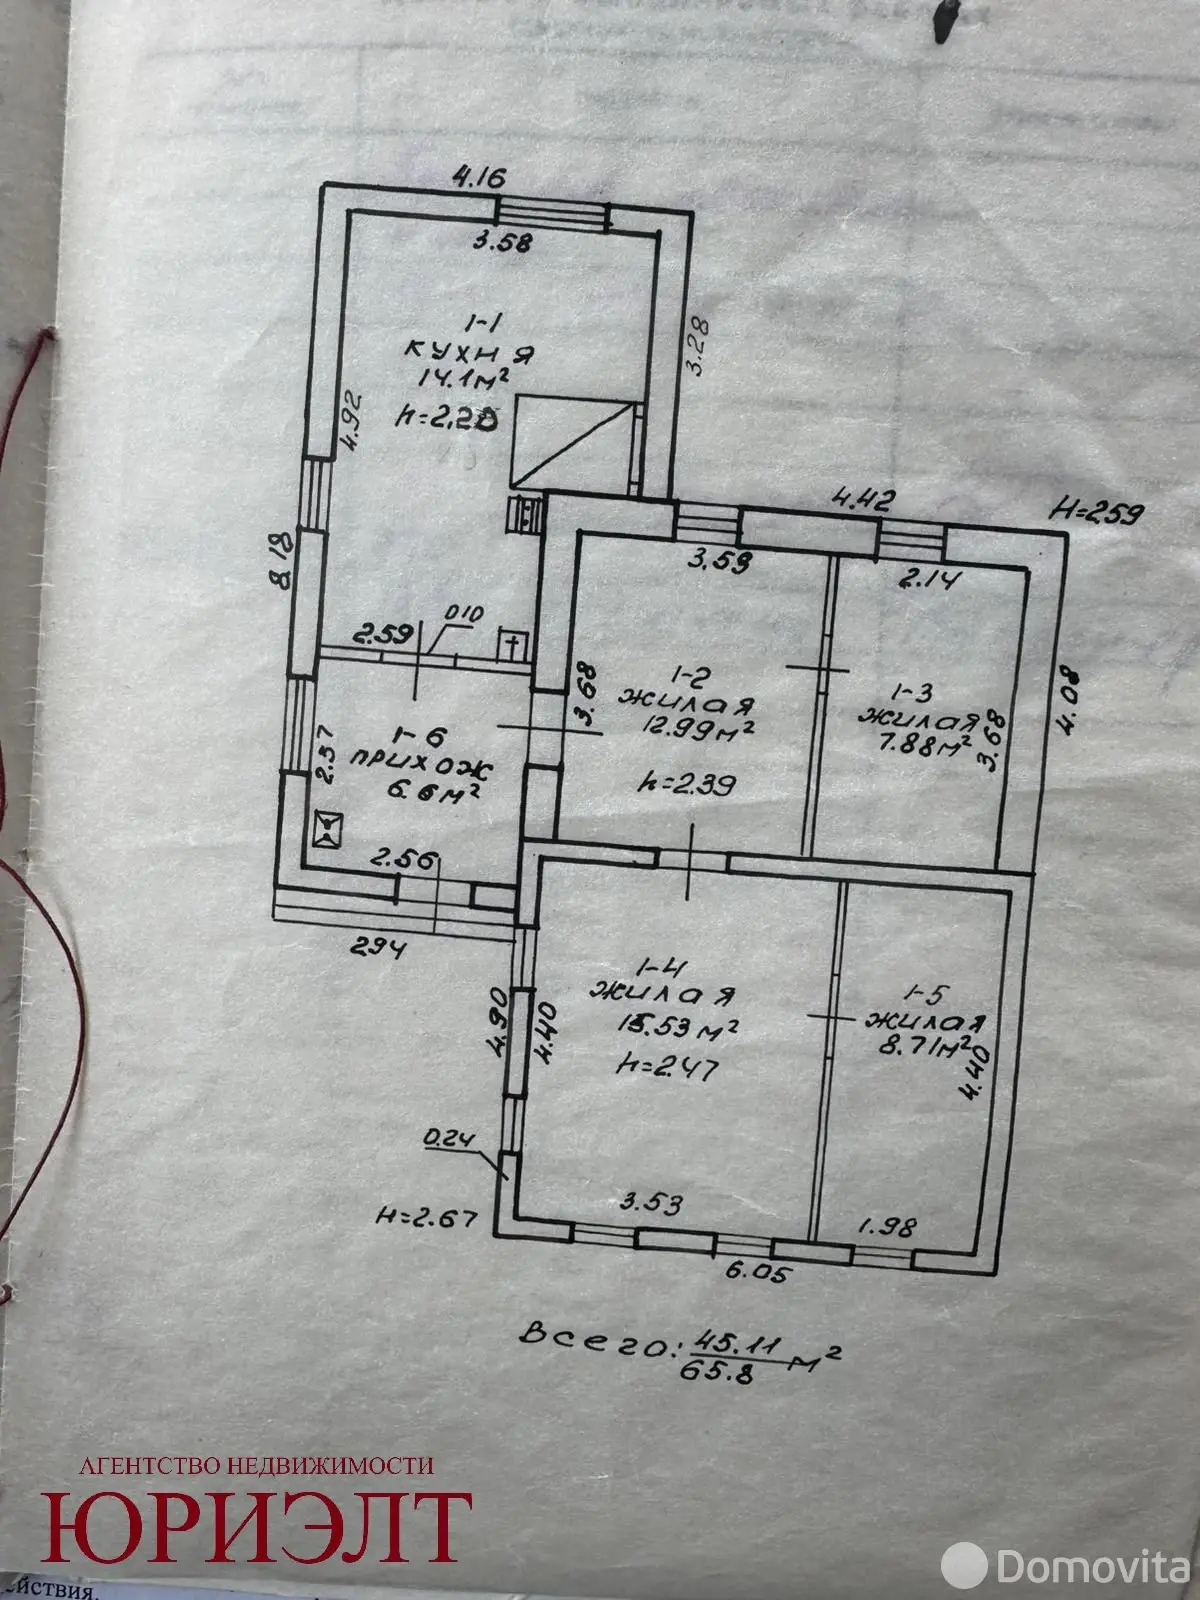 4.16
3.58
1-1
кухня
14.1м²
h=2.20
3.28
4.92
8.18
4.42
H=2.59
3.59
2.14
2.59
010
1-2
жилая
12.99м²
h=2.39
3.68
1-3
жилая
7.88м²
3.68
4.08
1-6
прихож
6.6м²
2.57
2.56
294
1-4
жилая
15.53м²
h=2.47
4.90
4.40
1-5
жилая
8.71м²
4.40
0.24
H=2.67
3.53
1.98
6.05
Всего: 45.11
65.8 м²
АГЕНТСТВО НЕДВИЖИМОСТИ
ЮРИЭЛТ
Domovita
ействия.